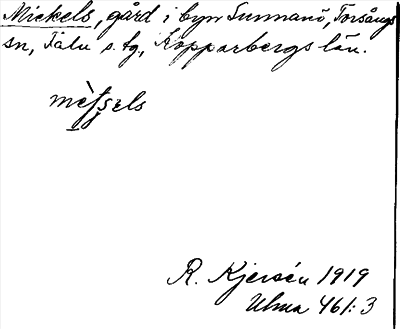 Mickels, gård i byn Sunnanö, Torsångs
sn, Falu s. tg, Kopparbergs län.
R. Kjersén 1919
Ulma 461:3